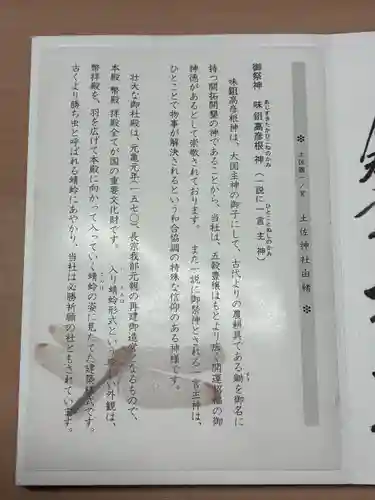 ❉ 土佐國一ノ宮 土佐神社由緒 ❉
御祭神 味鉏高彦根神(一説に一言主神)
あじすきたかひこねのかみ ひとことぬしのかみ
味鉏高彦根神は、大国主神の御子にして、古代よりの農耕具である鋤を御名に
すき
持つ開拓開墾の神であることから、当社は、五穀豊穣はもとより広く開運招福の御
神徳があるとして崇敬されております。また一説に御祭神とされる一言主神は、
ひとことで物事が解決されるという和合協調の特殊な信仰のある神様です。
壮大な御社殿は、元亀元年(一五七〇)長宗我部元親の再建御造営になるもので、
本殿 幣殿 拝殿全てが国の重要文化財です。入り蜻蛉形式という 外観は、
とんぼ
幣拝殿を、羽を広げて本殿に向かって入っていく蜻蛉の姿に見たてた建築様式です。
とんぼ
古くより勝ち虫と呼ばれる蜻蛉にあやかり、当社は必勝祈願の社ともされています。